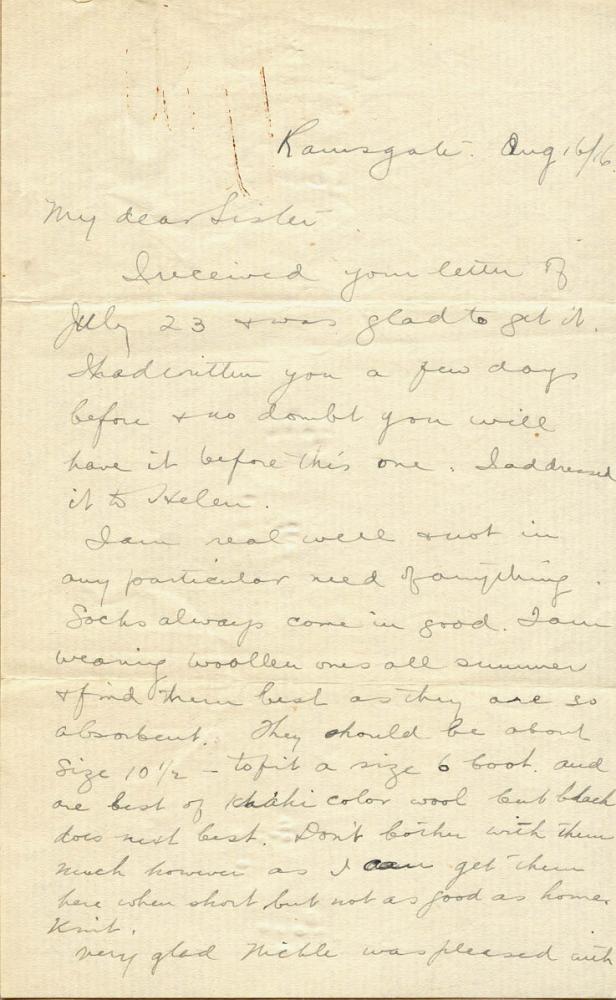 Ramsgate. Aug 16/16.
My dear Sister
I received your letter of
July 23 & was glad to get it.
I had written you a few days
before & no doubt you will
have it before this one. I addressed
it to Helen.
I am real well & not in
any particular need of anything.
Socks always come in good. I am
wearing woollen ones all summer
& find them best as they are so
absorbent. They should be about
size 10 1/2 - to fit a size 6 boot. and
are best of khaki color wool but black
does next best. Don't bother with them
much however as I can get them
here when short but not as good as home
Knit.
very glad Nickle was pleased with